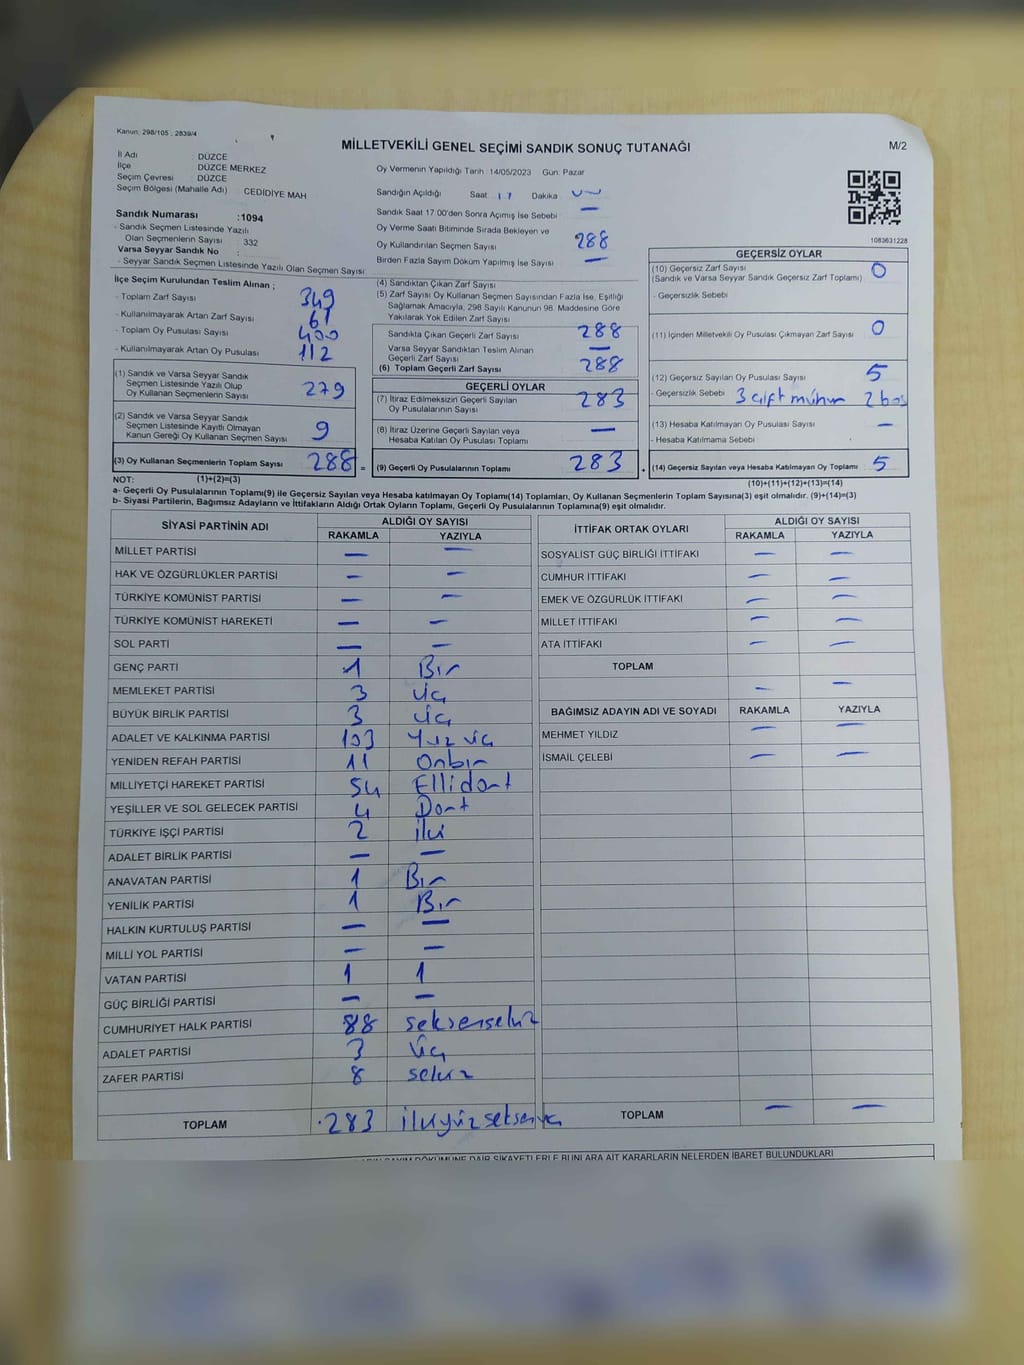 Kanun; 298/105 ; 2839/4
MİLLETVEKİLİ GENEL SEÇİMİ SANDIK SONUÇ TUTANAĞI
M/2
İl Adı DÜZCE
İlçe DÜZCE MERKEZ
Seçim Çevresi DÜZCE
Seçim Bölgesi (Mahalle Adı) CEDİDİYE MAH
Sandık Numarası :1094
- Sandık Seçmen Listesinde Yazılı
Olan Seçmenlerin Sayısı : 332
Varsa Seyyar Sandık No :
- Seyyar Sandık Seçmen Listesinde Yazılı Olan Seçmen Sayısı
Oy Vermenin Yapıldığı Tarih 14/05/2023 Gün: Pazar
Sandığın Açıldığı Saat 17 Dakika
Sandık Saat 17.00'den Sonra Açımış İse Sebebi —
Oy Verme Saati Bitiminde Sırada Bekleyen ve
Oy Kullandırılan Seçmen Sayısı 288
Birden Fazla Sayım Döküm Yapılmış İse Sayısı —
1083631228
İlçe Seçim Kurulundan Teslim Alınan ;
- Toplam Zarf Sayısı 349
- Kullanılmayarak Artan Zarf Sayısı 61
- Toplam Oy Pusulası Sayısı 400
- Kullanılmayarak Artan Oy Pusulası 112
(1) Sandık ve Varsa Seyyar Sandık
Seçmen Listesinde Yazılı Olup
Oy Kullanan Seçmenlerin Sayısı 279
(2) Sandık ve Varsa Seyyar Sandık
Seçmen Listesinde Kayıtlı Olmayan
Kanun Gereği Oy Kullanan Seçmen Sayısı 9
(3) Oy Kullanan Seçmenlerin Toplam Sayısı 288 =
(4) Sandıktan Çıkan Zarf Sayısı
(5) Zarf Sayısı Oy Kullanan Seçmen Sayısından Fazla İse, Eşitliği
Sağlamak Amacıyla, 298 Sayılı Kanunun 98. Maddesine Göre
Yakılarak Yok Edilen Zarf Sayısı
Sandıkta Çıkan Geçerli Zarf Sayısı 288
Varsa Seyyar Sandıktan Teslim Alınan
Geçerli Zarf Sayısı —
(6) Toplam Geçerli Zarf Sayısı 288
GEÇERLİ OYLAR
(7) İtiraz Edilmeksizin Geçerli Sayılan
Oy Pusulalarının Sayısı 283
(8) İtiraz Üzerine Geçerli Sayılan veya
Hesaba Katılan Oy Pusulası Toplamı —
(9) Geçerli Oy Pusulalarının Toplamı 283 +
GEÇERSİZ OYLAR
(10) Geçersiz Zarf Sayısı 0
(Sandık ve Varsa Seyyar Sandık Geçersiz Zarf Toplamı)
- Geçersizlik Sebebi
(11) İçinden Milletvekili Oy Pusulası Çıkmayan Zarf Sayısı 0
(12) Geçersiz Sayılan Oy Pusulası Sayısı 5
- Geçersizlik Sebebi 3 çift mühür 2 boş
(13) Hesaba Katılmayan Oy Pusulası Sayısı —
- Hesaba Katılmama Sebebi
(14) Geçersiz Sayılan veya Hesaba Katılmayan Oy Toplamı 5
NOT: (1)+(2)=(3)
(10)+(11)+(12)+(13)=(14)
a- Geçerli Oy Pusulalarının Toplamı(9) ile Geçersiz Sayılan veya Hesaba katılmayan Oy Toplamı(14) Toplamları, Oy Kullanan Seçmenlerin Toplam Sayısına(3) eşit olmalıdır. (9)+(14)=(3)
b- Siyasi Partilerin, Bağımsız Adayların ve İttifakların Aldığı Ortak Oyların Toplamı, Geçerli Oy Pusulalarının Toplamına(9) eşit olmalıdır.
SİYASİ PARTİNİN ADI ALDIĞI OY SAYISI
RAKAMLA YAZIYLA
MİLLET PARTİSİ — —
HAK VE ÖZGÜRLÜKLER PARTİSİ — —
TÜRKİYE KOMÜNİST PARTİSİ — —
TÜRKİYE KOMÜNİST HAREKETİ — —
SOL PARTİ — —
GENÇ PARTİ 1 Bir
MEMLEKET PARTİSİ 3 üç
BÜYÜK BİRLİK PARTİSİ 3 üç
ADALET VE KALKINMA PARTİSİ 103 Yüz üç
YENİDEN REFAH PARTİSİ 11 Onbir
MİLLİYETÇİ HAREKET PARTİSİ 54 Ellidört
YEŞİLLER VE SOL GELECEK PARTİSİ 4 Dört
TÜRKİYE İŞÇİ PARTİSİ 2 iki
ADALET BİRLİK PARTİSİ — —
ANAVATAN PARTİSİ 1 Bir
YENİLİK PARTİSİ 1 Bir
HALKIN KURTULUŞ PARTİSİ — —
MİLLİ YOL PARTİSİ — —
VATAN PARTİSİ 1 1
GÜÇ BİRLİĞİ PARTİSİ — —
CUMHURİYET HALK PARTİSİ 88 seksensekiz
ADALET PARTİSİ 3 Üç
ZAFER PARTİSİ 8 sekiz
TOPLAM 283 ikiyüzseksenüç
İTTİFAK ORTAK OYLARI ALDIĞI OY SAYISI
RAKAMLA YAZIYLA
SOSYALİST GÜÇ BİRLİĞİ İTTİFAKI — —
CUMHUR İTTİFAKI — —
EMEK VE ÖZGÜRLÜK İTTİFAKI — —
MİLLET İTTİFAKI — —
ATA İTTİFAKI — —
TOPLAM — —
BAĞIMSIZ ADAYIN ADI VE SOYADI RAKAMLA YAZIYLA
MEHMET YILDIZ — —
İSMAİL ÇELEBİ — —
TOPLAM — —
SAYIM DÖKÜMÜNE DAİR ŞİKAYETLERLE BUNLARA AİT KARARLARIN NELERDEN İBARET BULUNDUKLARI